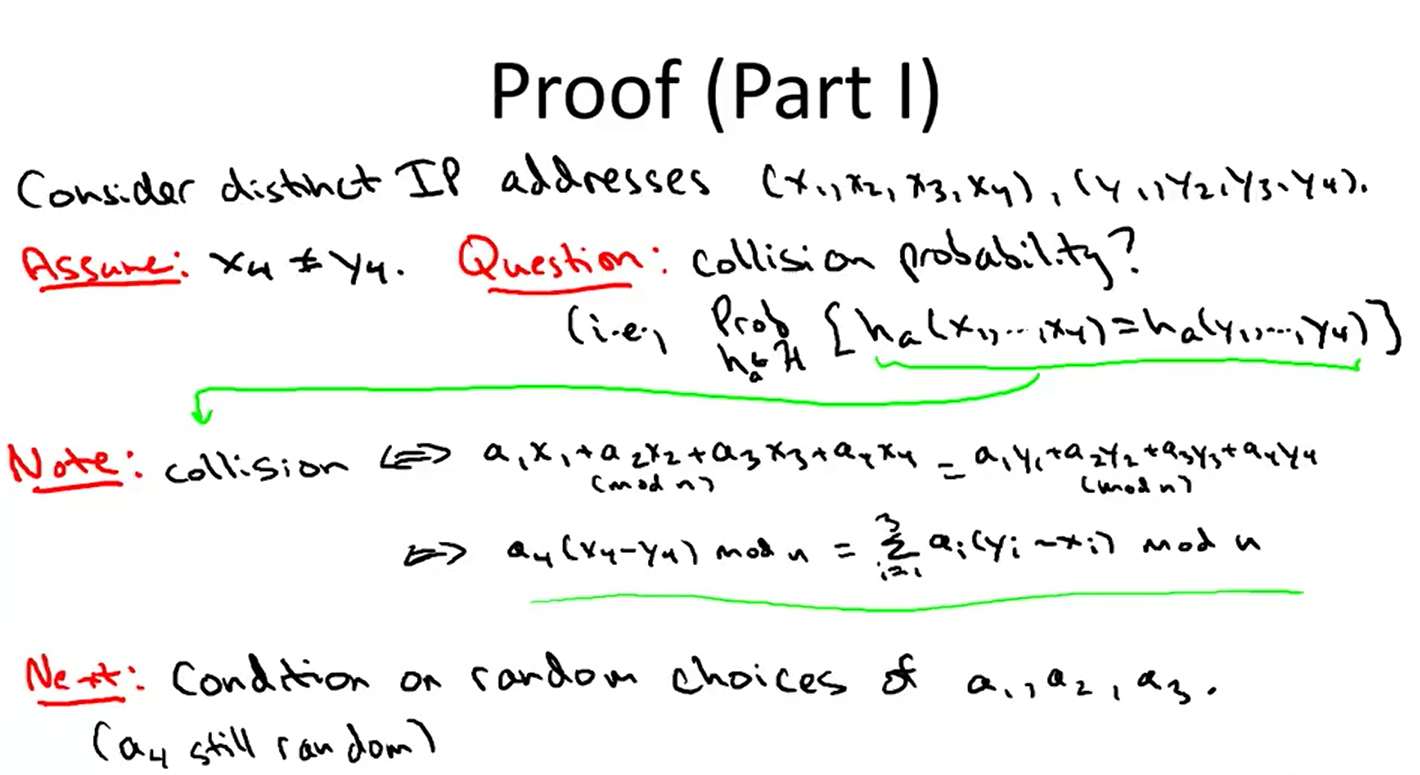 Proof (Part I)
Consider distinct IP addresses (x₁,x₂,x₃,x₄), (y₁,y₂,y₃,y₄).
Assume: x₄ ≠ y₄. Question: collision probability?
(i.e., Prob [hₐ(x₁,...,x₄)=hₐ(y₁,...,y₄)]
hₐ∈H
Note: collision <=> a₁x₁+a₂x₂+a₃x₃+a₄x₄ = a₁y₁+a₂y₂+a₃y₃+a₄y₄
(mod n) (mod n)
<=> a₄(x₄-y₄) mod n = ∑³ᵢ₌₁ aᵢ(yᵢ-xᵢ) mod n
Next: Condition on random choices of a₁, a₂, a₃.
(a₄ still random)